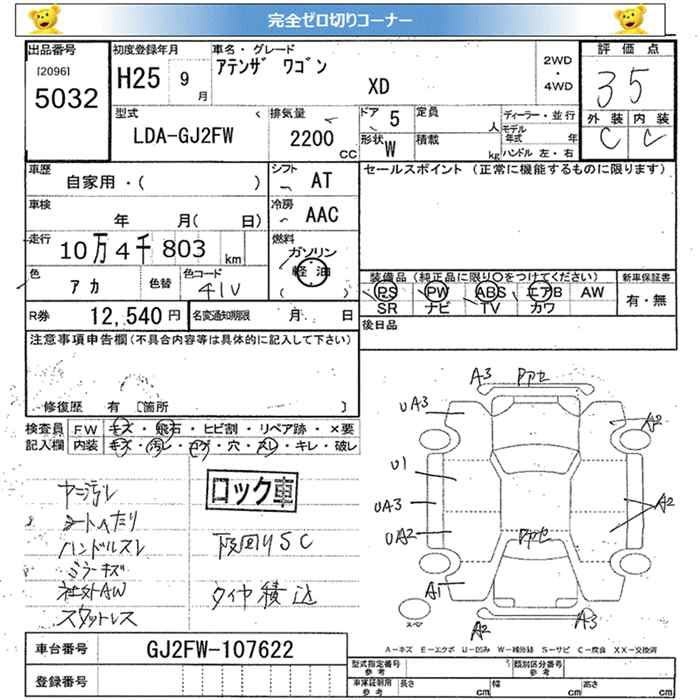 完全ゼロ切りコーナー
出品番号
[2096]
5032
初度登録年月
H25 9月
車名・グレード
アテンザ ワゴン
XD
2WD
・
4WD
評価点
3 5
外装 内装
C C
型式
LDA-GJ2FW
排気量
2200 CC
ドア 5
形状 W
定員 人
積載 kg
ディーラー・並行
モデル年式 年
ハンドル 左・右
車歴
自家用・( )
シフト AT
セールスポイント (正常に機能するものに限ります)
車検 年 月( 日)
冷房 AAC
走行
10万4千803 km
燃料
ガソリン
軽油
( )
色 アカ 色替
色コード 41V
装備品 (純正品に限り○をつけてください)
PS PW ABS エアB AW
SR ナビ TV カワ
新車保証書
有・無
R券 12,540円
名変通知期限 月 日
後日品
注意事項申告欄(不具合内容等は具体的に記入して下さい)
修復歴 有 〔箇所 〕
検査員記入欄
FW キズ・飛石・ヒビ割・リペア跡・×要
内装 キズ・汚レ・コゲ・穴・スレ・キレ・破レ
ヤニ汚レ
シートへたり
ハンドルスレ
ミラーキズ
社外AW
スタットレス
ロック車
下回りSC
タイヤ積込
A3 PアセA
UA3
A2
U1
UA3
A2
UA2
Pアセ
A1
スペア
A2
A3
A-キズ E-エクボ U-凹み W-補修跡 S-サビ C-腐食 XX-交換済
車台番号 GJ2FW-107622
登録番号
型式指定番号 参考
類別区分番号 参考
車庫証明用 参考
長さ cm
幅 cm
高さ cm